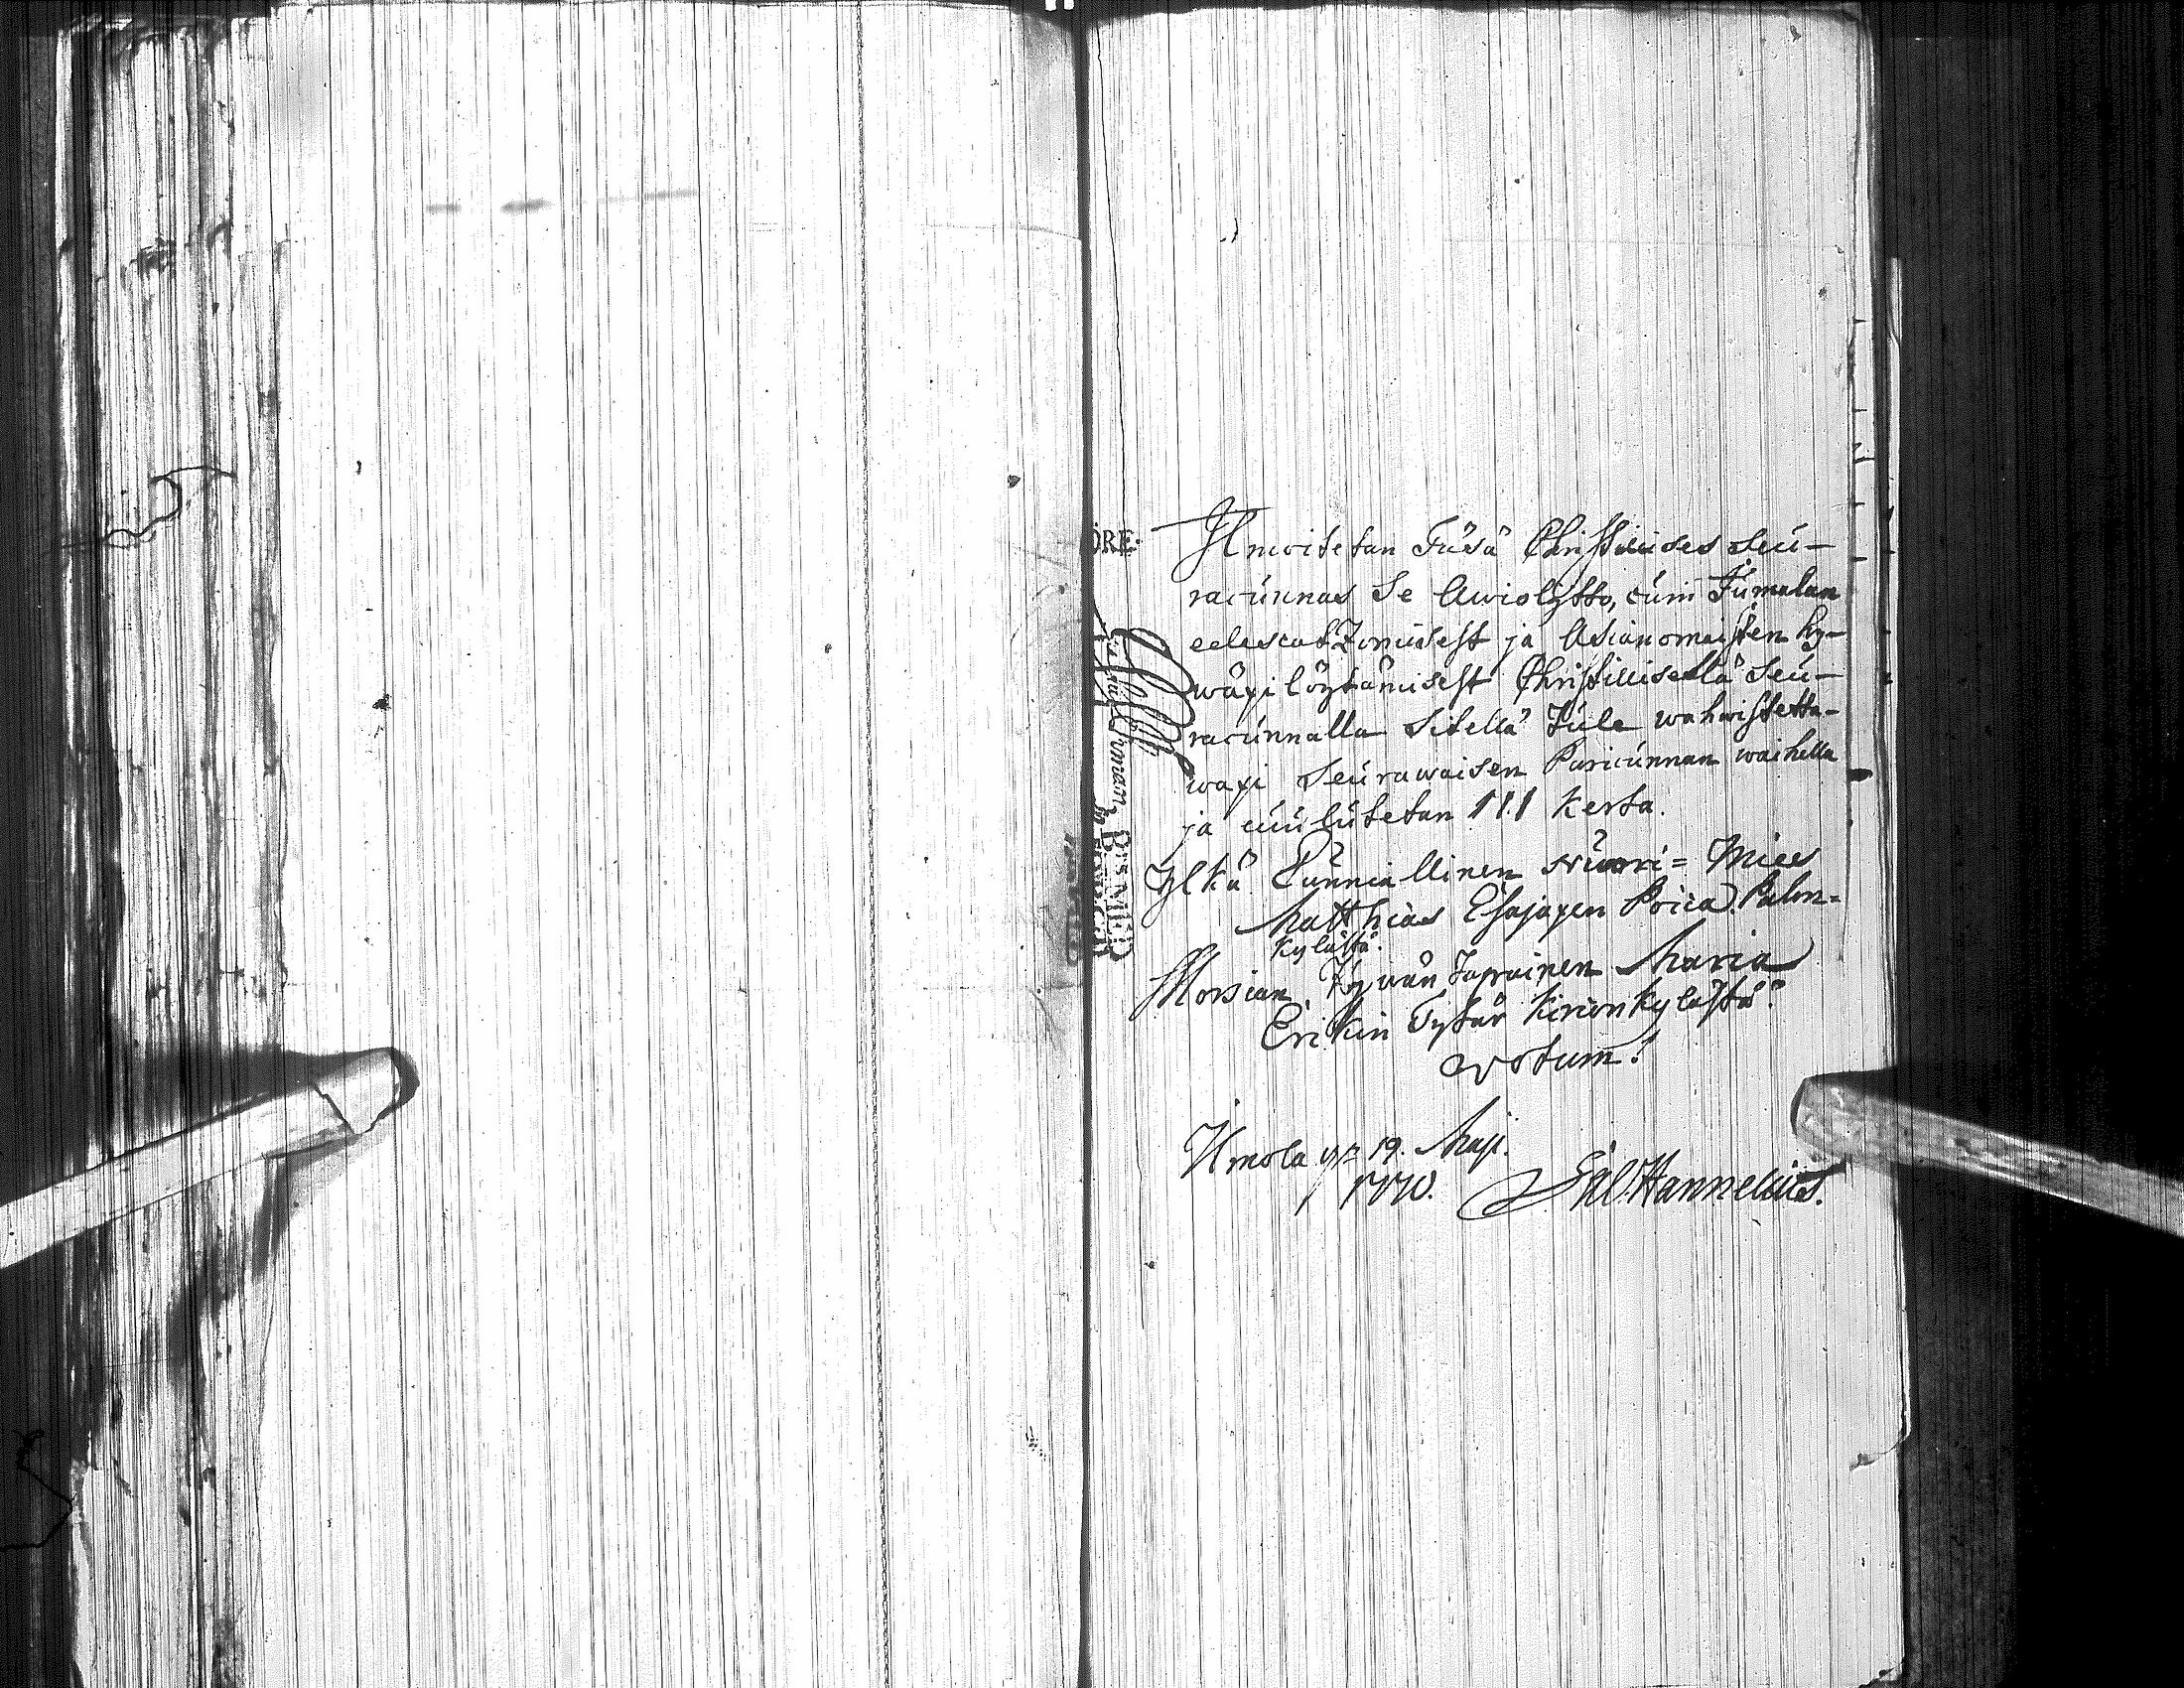 ÖRE.
Ilmoitetan Täsä Christilises Seu-
racunnas Se Awiolijtto, cuin Jumalan
edescatzomisest ja Asianomaisten hy-
wäxi löytämisest Christillisellä Seu-
racunnalla Sitellä Tule wahwistetta-
waxi Seurawaisen Paricunnan waihella
ja cuulutetan 111 kerta.
Ylkä Cunniallinen Nuori= Mies
Matthias Esajaxen Poica Palon-
kylästä.
Morsian Hywän Tapainen Maria
Erikin Tytär Kirconkylästä.
votum!
Ilmola 19. Maji.
1770. Hannelius.